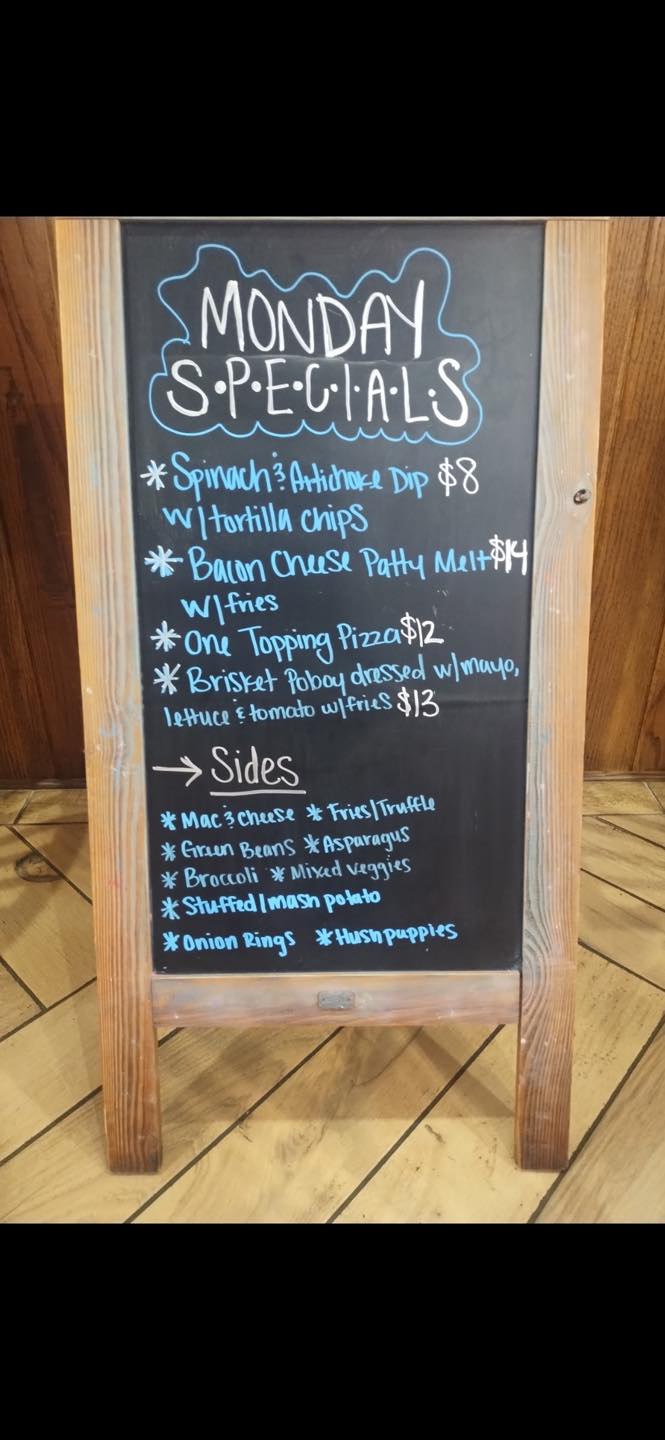 MONDAY
S•P•E•C•I•A•L•S
* Spinach & Artichoke Dip $8
w/tortilla chips
* Bacon Cheese Patty Melt $14
w/fries
* One Topping Pizza $12
* Brisket Poboy dressed w/mayo,
lettuce & tomato w/fries $13
→ Sides
* Mac & cheese * Fries/Truffle
* Green Beans * Asparagus
* Broccoli * Mixed veggies
* Stuffed/mash potato
* Onion Rings * Hushpuppies